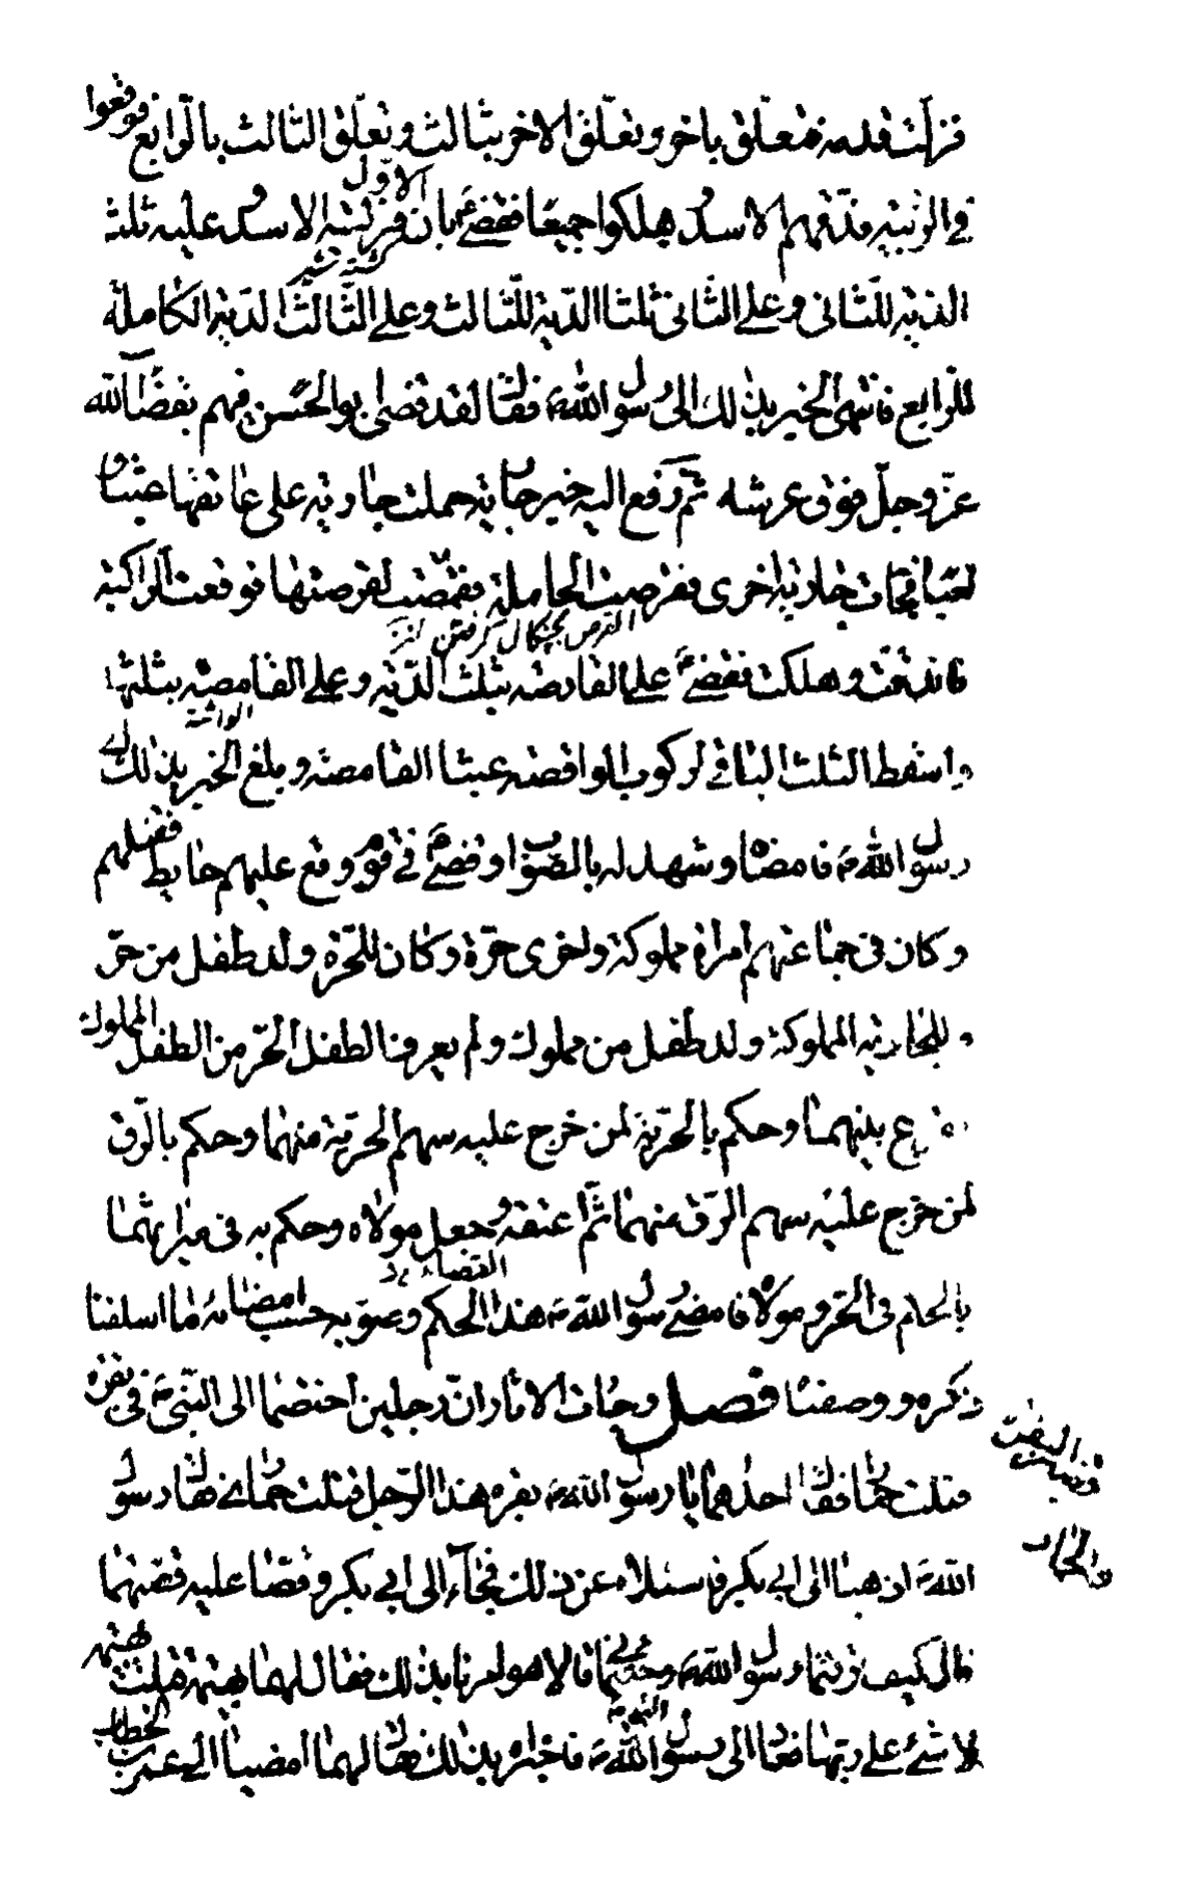 فزلت قدمه فتعلق باخر وتعلق الاخر بثالث وتعلق الثالث بالرابع فوقعوا
في الزبية فدقهم الاسد وهلكوا جميعا فقضى ع بان الاول فريسة الاسد وعليه ثلث
الدية للثاني وعلى الثاني ثلثا الدية للثالث وعلى الثالث الدية الكاملة
للرابع فانتهى الخبر بذلك الى رسول الله ص فقال لقد قضى ابو الحسن فيهم بقضاء الله
عز وجل فوق عرشه ثم رفع اليه خبر جارية حملت جارية على عاتقها عبثا و
لعبا فجاءت جارية اخرى فقرصت الحاملة فقمصت لقرصتها فوقعت الراكبة
القرص بچنگال گرفتن
فاندقت وهلكت فقضى ع على القارصة بثلث الدية وعلى القامصة بثلثها
واسقط الثلث الباقي لركوب الواقصة عبثا القامصة وبلغ الخبر بذلك الى
رسول الله ص فامضاه وشهد له بالصواب وقضى ع في قوم وقع عليهم حايط فقتلهم
وكان في جماعتهم امراة مملوكة واخرى حرة وكان للحرة ولد طفل من حر
وللجارية المملوكة ولد طفل من مملوك ولم يعرف الطفل الحر من الطفل المملوك
فقرع بينهما وحكم بالحرية لمن خرج عليه سهم الحرية منهما وحكم بالرق
لمن خرج عليه سهم الرق منهما ثم اعتقه وجعل مولاه وحكم به في ميراثهما
بالحكم في الحر ومولاه فامضى رسول الله ص هذا القضاء الحكم وصوبه حسب امضائه ما اسلفنا
ذكره ووصفناه فصل وجاءت الاثار ان رجلين اختصما الى النبي ص في بقرة
قتلت حمارا فقال احدهما يا رسول الله ص بقرة هذا الرجل قتلت حماري فقال رسول
الله ص اذهبا الى ابي بكر فاسئلاه عن ذلك فجاءا الى ابي بكر وقصا عليه قصتهما
قال كيف تركتما رسول الله ص وجئتماني قالا هو امرنا بذلك فقال لهما بهيمة قتلت بهيمة
لا شئ على ربها فعادا الى رسول الله ص فاخبراه بذلك فقال لهما امضيا الى عمر بن الخطاب
قصة البقرة
والحمار